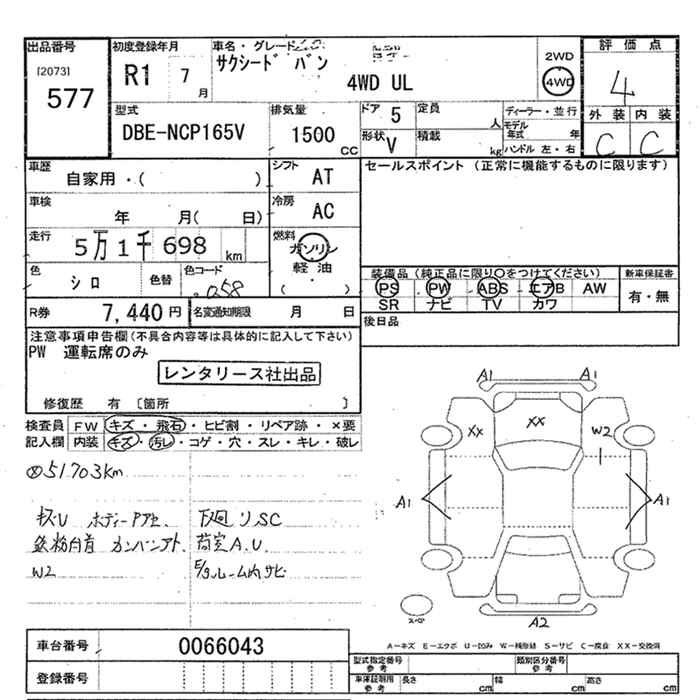 出品番号 初度登録年月 車名・グレード 2WD 評価点
[2073] サクシード バン
577 R1 7月 4WD UL 4WD 4
型式 排気量 ドア 5 定員 人 ディーラー・並行 外装 内装
DBE-NCP165V 1500 cc 形状 V 積載 kg モデル年式 年 C C
ハンドル 左・右
車歴 シフト セールスポイント (正常に機能するものに限ります)
自家用・( ) AT
車検 冷房
年 月( 日) AC
走行 燃料
5万1千698 km ガソリン
軽油
色 色替 色コード ( ) 装備品 (純正品に限り〇をつけてください) 新車保証書
シロ 058 PS PW ABS エアB AW 有・無
SR ナビ TV カワ
R券 7,440円 名変通知期限 月 日 後日品
注意事項申告欄(不具合内容等は具体的に記入して下さい)
PW 運転席のみ
レンタリース社出品
修復歴 有 〔箇所 〕
検査員 FW キズ・飛石・ヒビ割・リペア跡・×要
記入欄 内装 キズ・汚レ・コゲ・穴・スレ・キレ・破レ
51703km
キズU ボディーPアセ、 下廻りSC
鉄粉 カンバンアト、 荷室A.U
W2 E/gルーム内サビ
A1 A1
XX XX W2
A1 A1
スペア A2
A-キズ E-エクボ U-凹み W-補修跡 S-サビ C-腐食 XX-交換済
車台番号 0066043
登録番号
型式指定番号 参考 類別区分番号 参考
車庫証明用 参考 長さ cm 幅 cm 高さ cm